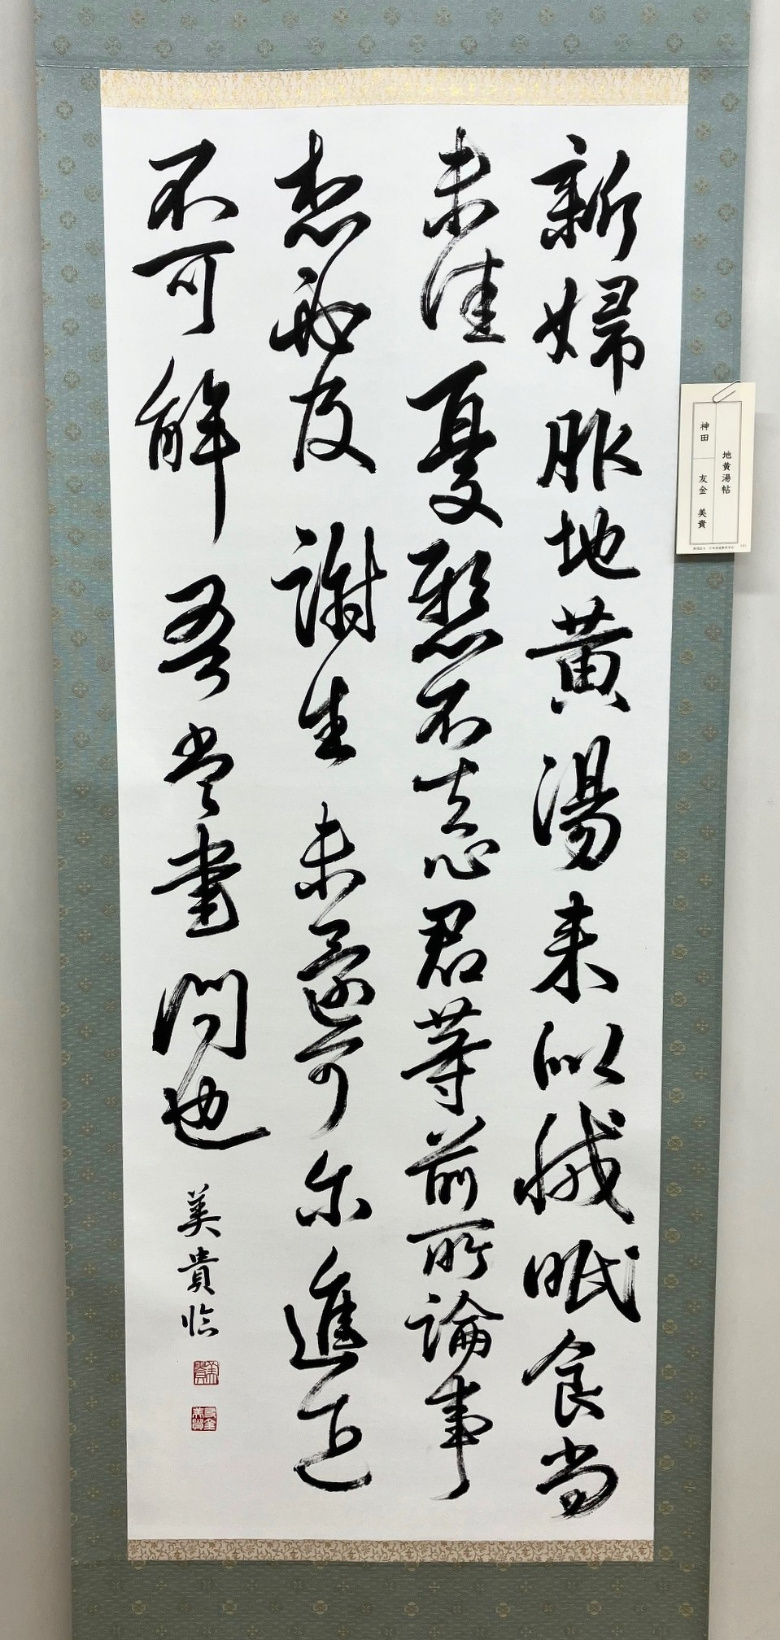 新婦服地黄湯来似減眠食尚
未佳憂懸不去心君等前所論事
想必及謝生未還可尓進退
不可解吾當書問也
美貴臨
地黄湯帖
神田 友金 美貴